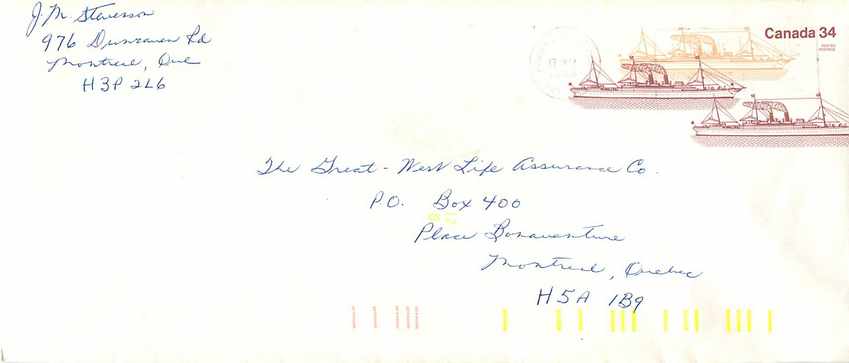 J.M. Stevenson
976 Dunraven Rd
Montreal, Que
H3P 2L6
Canada 34
The Great-West Life Assurance Co.
P.O. Box 400
Place Bonaventure
Montreal, Quebec
H5A 1B9